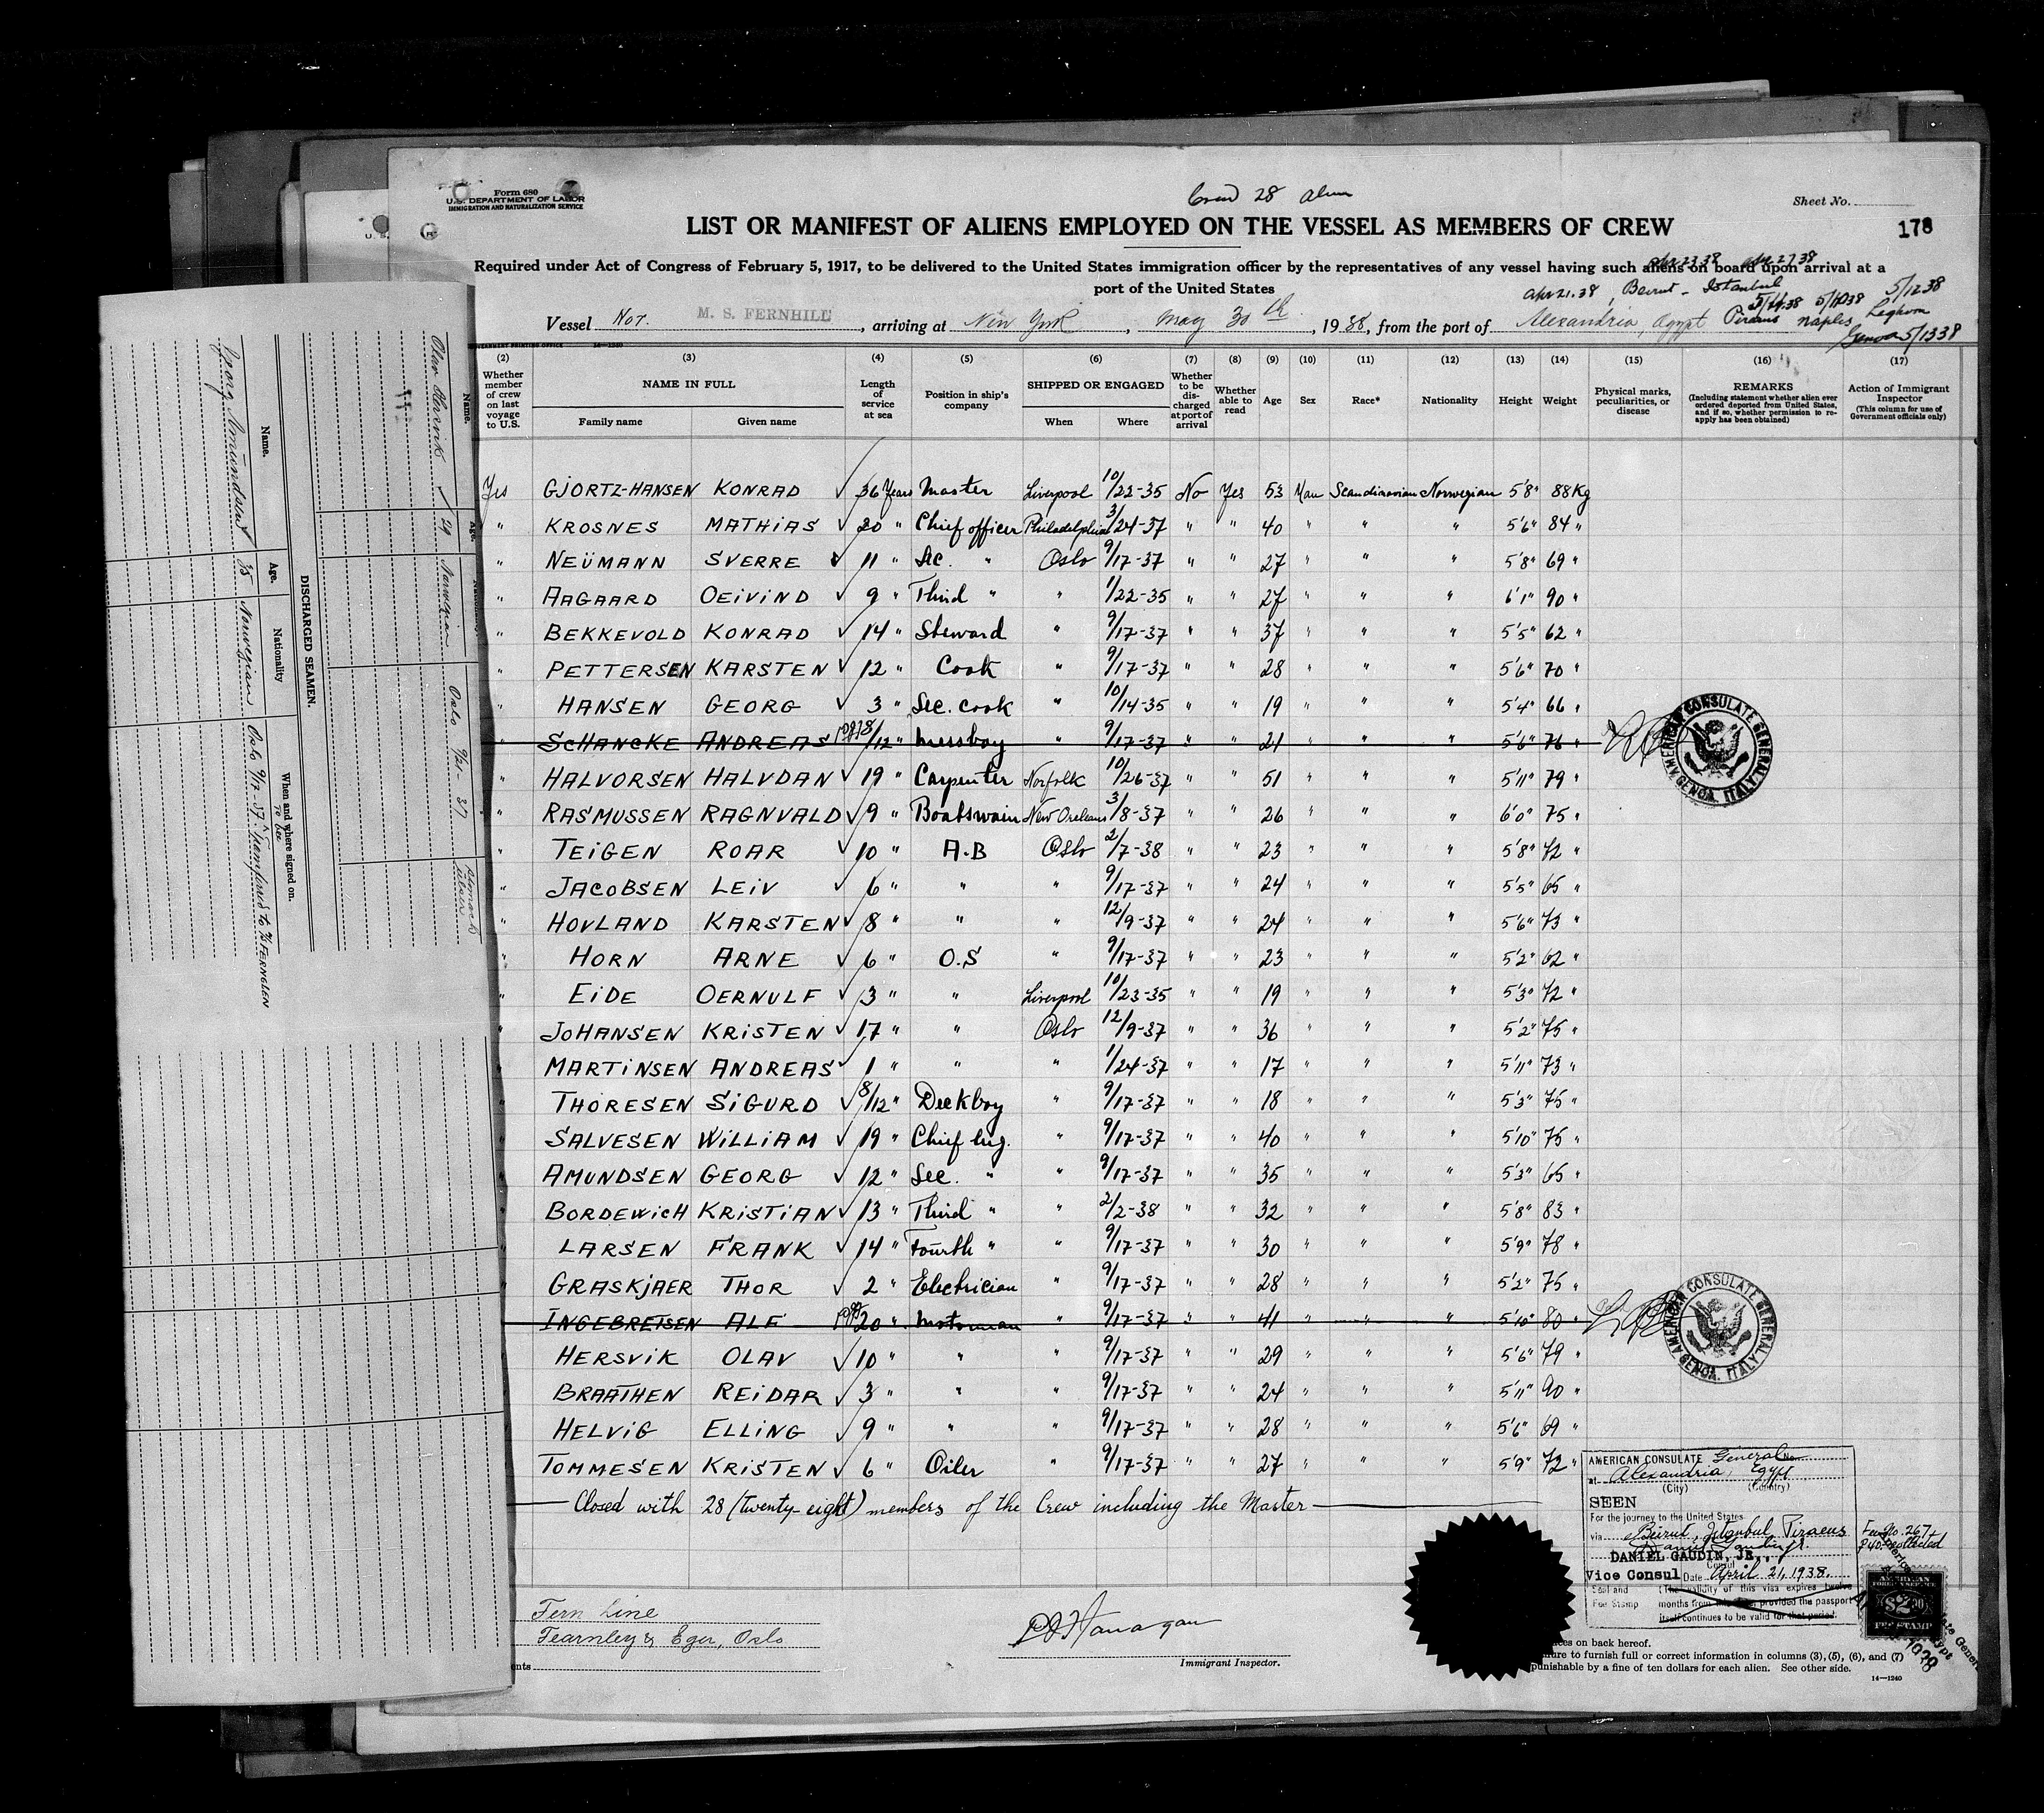 Form 680
U.S. DEPARTMENT OF LABOR
IMMIGRATION AND NATURALIZATION SERVICE
28
Sheet No.
LIST OR MANIFEST OF ALIENS EMPLOYED ON THE VESSEL AS MEMBERS OF CREW
178
Required under Act of Congress of February 5, 1917, to be delivered to the United States immigration officer by the representatives of any vessel having such aliens on board upon arrival at a
port of the United States
Apr 23 38 Apr 27 38
Apr 21.38, Beirut - Istanbul 5/12 38
Vessel Nor. M. S. FERNHILL, arriving at New York, May 30th, 1938, from the port of Alexandria, Egypt Piraeus Naples Leghorn
Genoa 5/13 38
(2) (3) (4) (5) (6) (7) (8) (9) (10) (11) (12) (13) (14) (15) (16) (17)
Whether member of crew on last voyage to U.S. NAME IN FULL Family name Given name Length of service at sea Position in ship's company SHIPPED OR ENGAGED When Where Whether to be discharged at port of arrival Whether able to read Age Sex Race* Nationality Height Weight Physical marks, peculiarities, or disease REMARKS (Including statement whether alien ever ordered deported from United States, and if so, whether permission to reapply has been obtained) Action of Immigrant Inspector (This column for use of Government officials only)
Yes GJORTZ-HANSEN KONRAD √ 36 Years Master Liverpool 10/22-35 No Yes 53 Man Scandinavian Norwegian 5'8" 88 Kg
" KROSNES MATHIAS √ 20 " Chief officer Philadelphia 3/24-37 " " 40 " " " 5'6" 84 "
" NEUMANN SVERRE √ 11 " Sec. " Oslo 9/17-37 " " 27 " " " 5'8" 69 "
" AAGAARD OEIVIND √ 9 " Third " " 1/22-35 " " 27 " " " 6'1" 90 "
" BEKKEVOLD KONRAD √ 14 " Steward " 9/17-37 " " 37 " " " 5'5" 62 "
" PETTERSEN KARSTEN √ 12 " Cook " 9/17-37 " " 28 " " " 5'6" 70 "
" HANSEN GEORG √ 3 " Sec. cook " 10/14-35 " " 19 " " " 5'4" 66 "
" SCHANCKE ANDREAS 8/12 " Messboy " 9/17-37 " " 21 " " " 5'6" 76 "
" HALVORSEN HALVDAN √ 19 " Carpenter Norfolk 10/26-37 " " 51 " " " 5'11" 79 "
" RASMUSSEN RAGNVALD √ 9 " Boatswain New Orleans 3/8-37 " " 26 " " " 6'0" 75 "
" TEIGEN ROAR √ 10 " A.B Oslo 2/7-38 " " 23 " " " 5'8" 72 "
" JACOBSEN LEIV √ 6 " " " 9/17-37 " " 24 " " " 5'5" 65 "
" HOVLAND KARSTEN √ 8 " " " 12/9-37 " " 24 " " " 5'6" 73 "
" HORN ARNE √ 6 " O.S " 9/17-37 " " 23 " " " 5'2" 62 "
" EIDE OERNULF √ 3 " " Liverpool 10/23-35 " " 19 " " " 5'3" 72 "
" JOHANSEN KRISTEN √ 17 " " Oslo 12/9-37 " " 36 " " " 5'2" 75 "
" MARTINSEN ANDREAS √ 1 " " " 1/24-37 " " 17 " " " 5'11" 73 "
" THORESEN SIGURD √ 8/12 " Deckboy " 9/17-37 " " 18 " " " 5'3" 75 "
" SALVESEN WILLIAM √ 19 " Chief Eng. " 9/17-37 " " 40 " " " 5'10" 75 "
" AMUNDSEN GEORG √ 12 " Sec. " " 9/17-37 " " 35 " " " 5'3" 65 "
" BORDEWICH KRISTIAN √ 13 " Third " " 2/2-38 " " 32 " " " 5'8" 83 "
" LARSEN FRANK √ 14 " Fourth " " 9/17-37 " " 30 " " " 5'9" 78 "
" GRASKJAER THOR √ 2 " Electrician " 9/17-37 " " 28 " " " 5'2" 75 "
" INGEBRETSEN ALF 20 " Motorman " 9/17-37 " " 41 " " " 5'10" 80 "
" HERSVIK OLAV √ 10 " " " 9/17-37 " " 29 " " " 5'6" 79 "
" BRAATHEN REIDAR √ 3 " " " 9/17-37 " " 24 " " " 5'11" 90 "
" HELVIG ELLING √ 9 " " " 9/17-37 " " 28 " " " 5'6" 69 "
" TOMMESEN KRISTEN √ 6 " Oiler " 9/17-37 " " 27 " " " 5'9" 72 "
Closed with 28 (twenty-eight) members of the Crew including the Master
AMERICAN CONSULATE GENERAL. GENOA. ITALY
AMERICAN CONSULATE GENERAL. GENOA. ITALY
AMERICAN CONSULATE General No.
at Alexandria, Egypt
(City) (Country)
SEEN
For the journey to the United States
via Beirut, Istanbul, Piraeus
Daniel Gaudin Jr.
DANIEL GAUDIN, JR.,
Consul
Vice Consul Date April 21, 1938.
Seal and Fee Stamp (The validity of this visa expires twelve
months from this date, provided the passport
itself continues to be valid for that period.
Fee No. 267
collected
$2.00
FEE STAMP
Fern Line
Fearnley & Eger, Oslo
Immigrant Inspector.
on back hereof.
to furnish full or correct information in columns (3), (5), (6), and (7)
punishable by a fine of ten dollars for each alien. See other side.
14—1240
Name. Age.
Olav Hersvik √ 29 Norwegian Oslo 9/21-37
DISCHARGED SEAMEN.
Name. Age. Nationality When and where signed on.
Georg Amundsen 35 Norwegian Oslo 9/17-37 To be transferred to M/S FERNGLEN